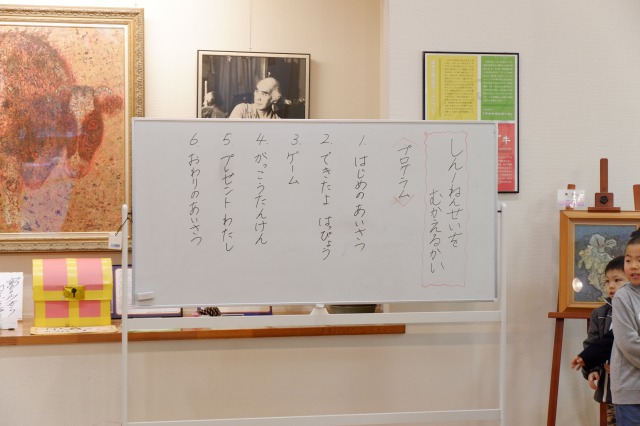 しん1ねんせいを
むかえるかい
プログラム
1. はじめのあいさつ
2. できたよ はっぴょう
3. ゲーム
4. がっこうたんけん
5. プレゼントわたし
6 おわりのあいさつ